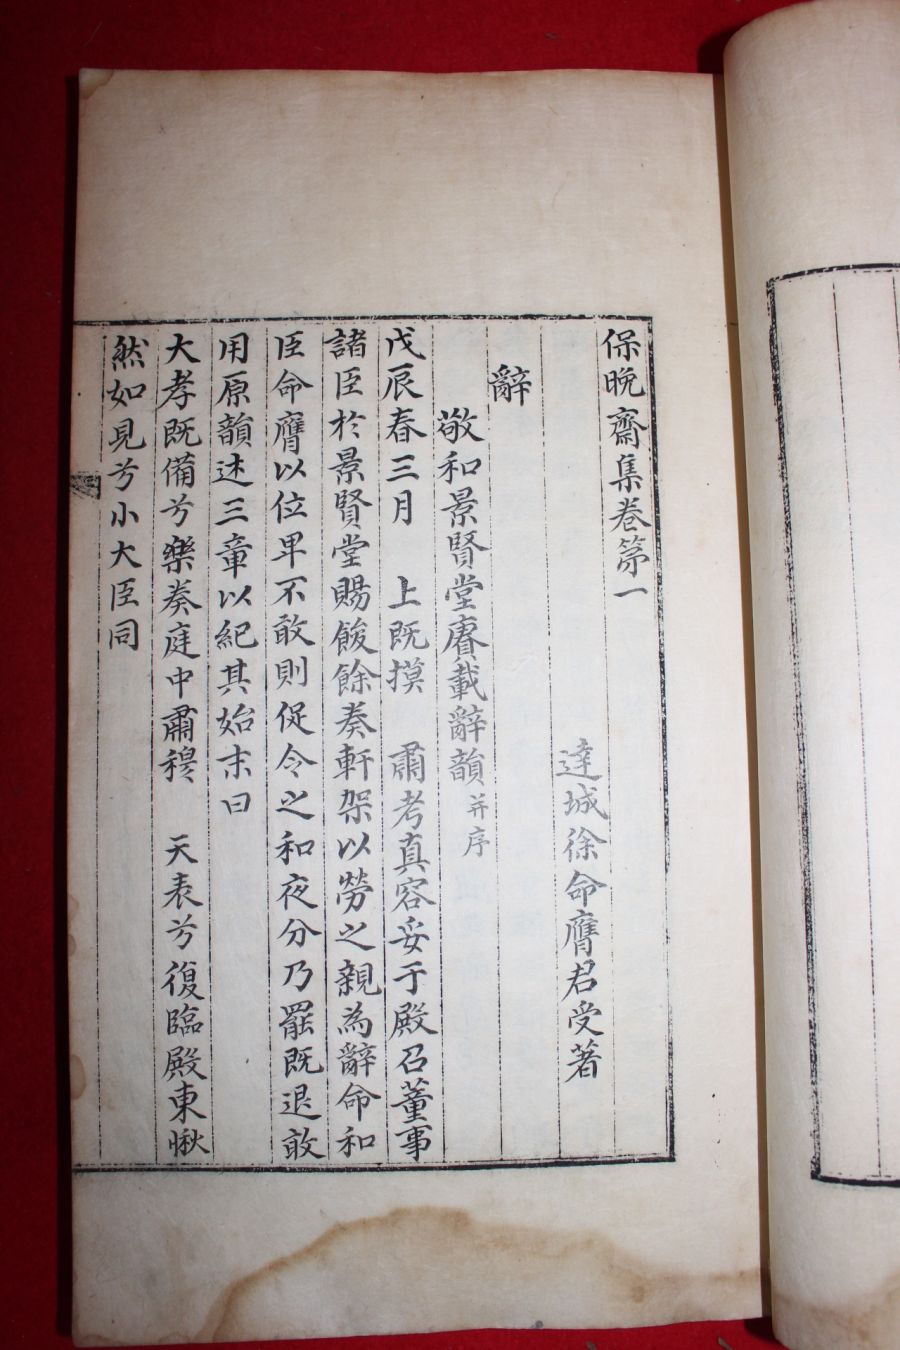 保晩齋集卷第一
達城徐命膺君受著
辭
敬和景賢堂賡載辭韻 并序
戊辰春三月 上既摸 肅考真容妥于殿召董事
諸臣於景賢堂賜餕餘奏軒架以勞之親為辭命和
臣命膺以位卑不敢則促令之和夜分乃罷既退敢
用原韻述三章以紀其始末曰
大孝既備兮樂奏庭中肅穆 天表兮復臨殿東愀
然如見兮小大臣同